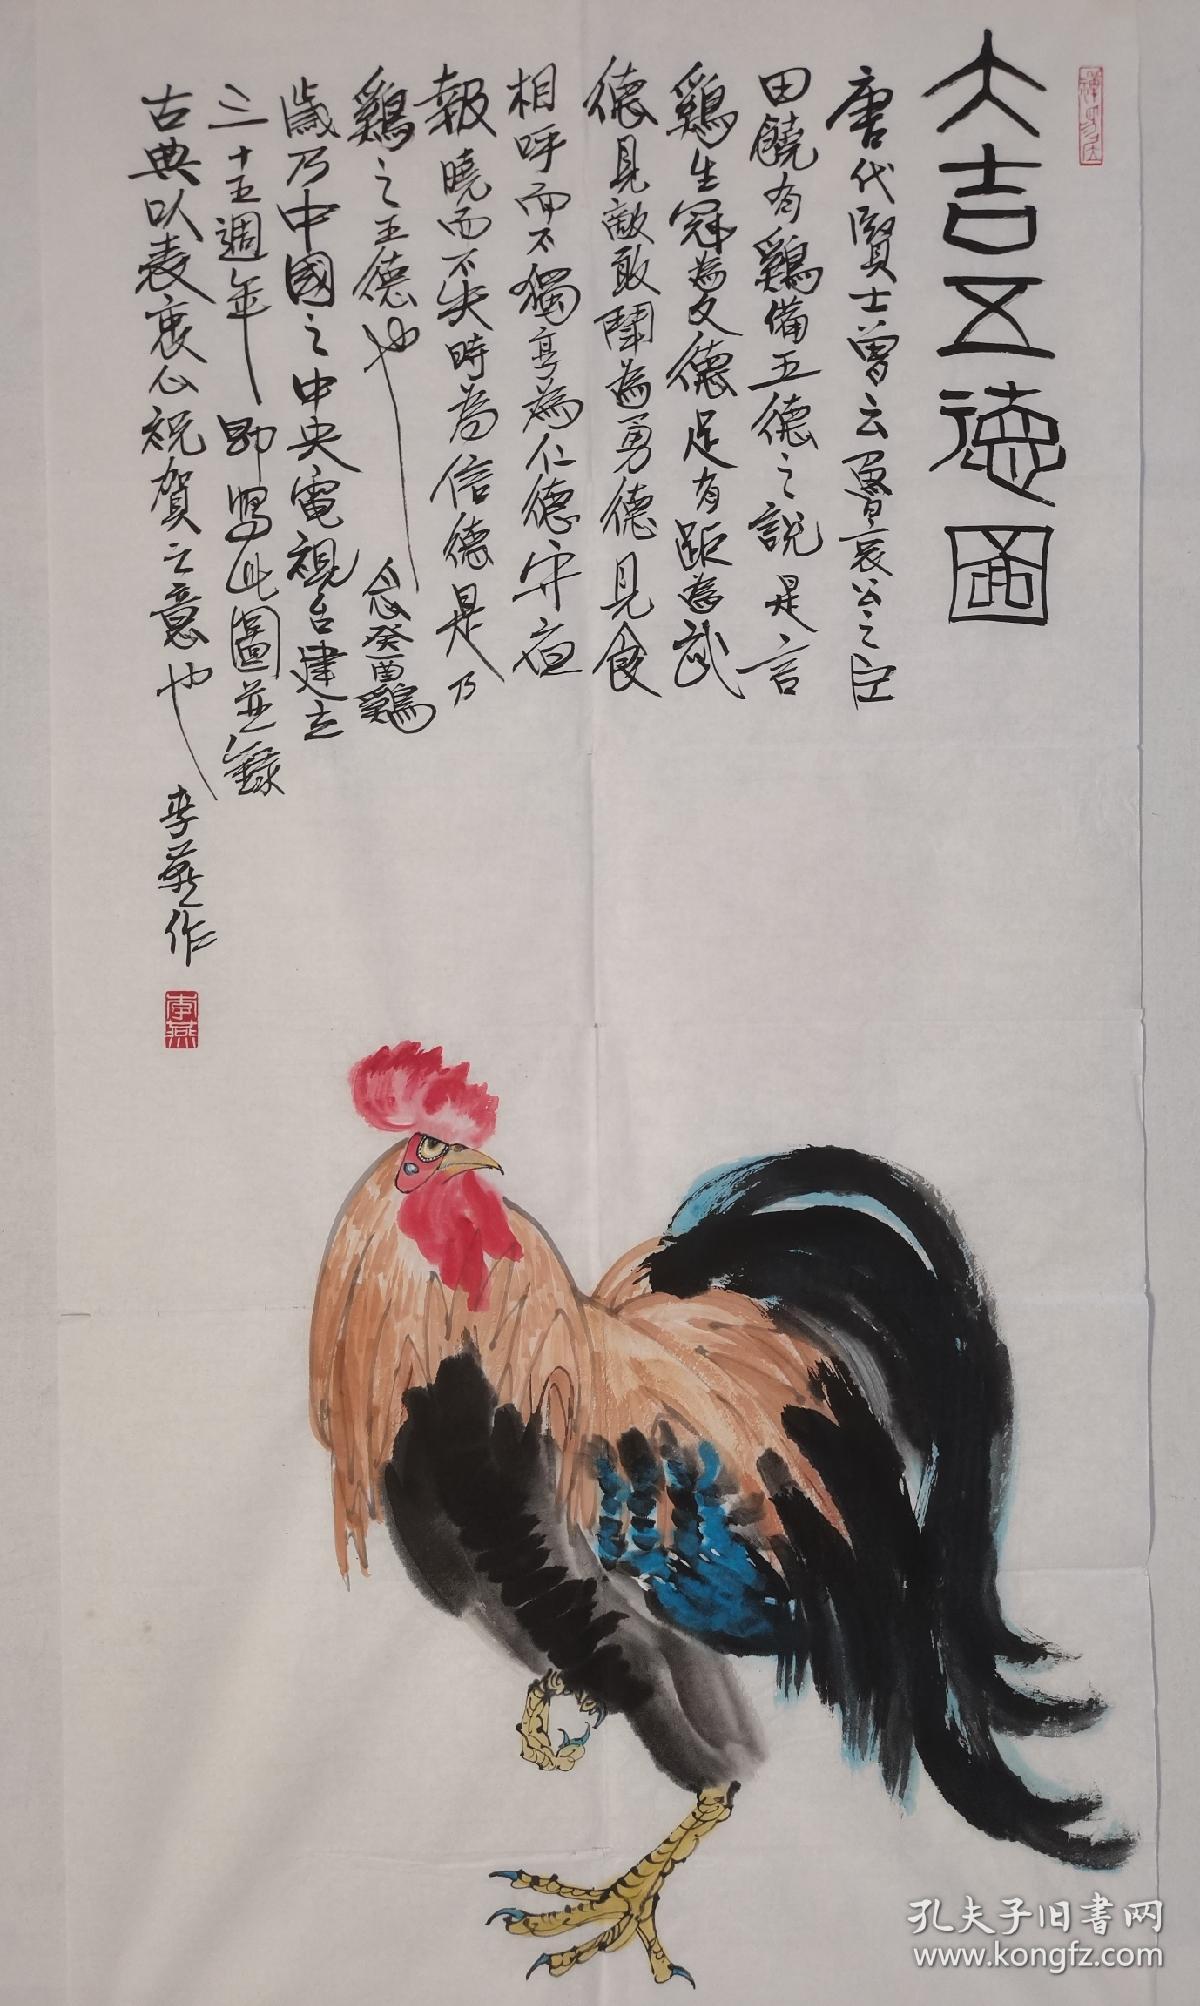 大吉五德圖
唐代賢士曾云魯哀公之臣
田饒有鷄備五德之說是言
鷄生冠為文德足有距為武
德見敵敢鬪為勇德見食
相呼而不獨享為仁德守夜
報曉而不失時為信德是乃
鷄之五德也 念癸酉鷄
歲乃中國之中央電視台建立
三十五週年 即寫此圖並錄
古典以表衷心祝賀之意也
李燕作
李燕
孔夫子旧書网
www.kongfz.com